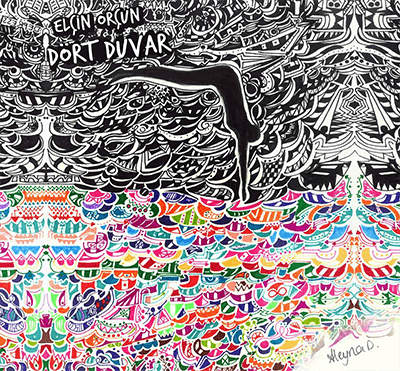 ELÇİN ORÇUN
DÖRT DUVAR
Aleyna D.